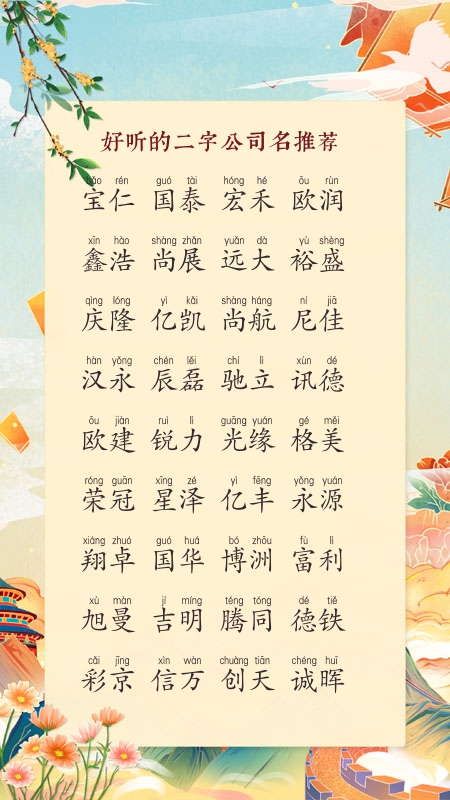 好听的二字公司名推荐
bǎo rén guó tài hóng hé ōu rùn
宝仁 国泰 宏禾 欧润
xīn hào shàng zhǎn yuǎn dà yù shèng
鑫浩 尚展 远大 裕盛
qìng lóng yì kǎi shàng háng ní jiā
庆隆 亿凯 尚航 尼佳
hàn yǒng chén lěi chí lì xùn dé
汉永 辰磊 驰立 讯德
ōu jiàn ruì lì guāng yuán gé měi
欧建 锐力 光缘 格美
róng guān xīng zé yì fēng yǒng yuán
荣冠 星泽 亿丰 永源
xiáng zhuó guó huá bó zhōu fù lì
翔卓 国华 博洲 富利
xù màn jí míng téng tóng dé tiě
旭曼 吉明 腾同 德铁
cǎi jīng xìn wàn chuàng tiān chéng huī
彩京 信万 创天 诚晖